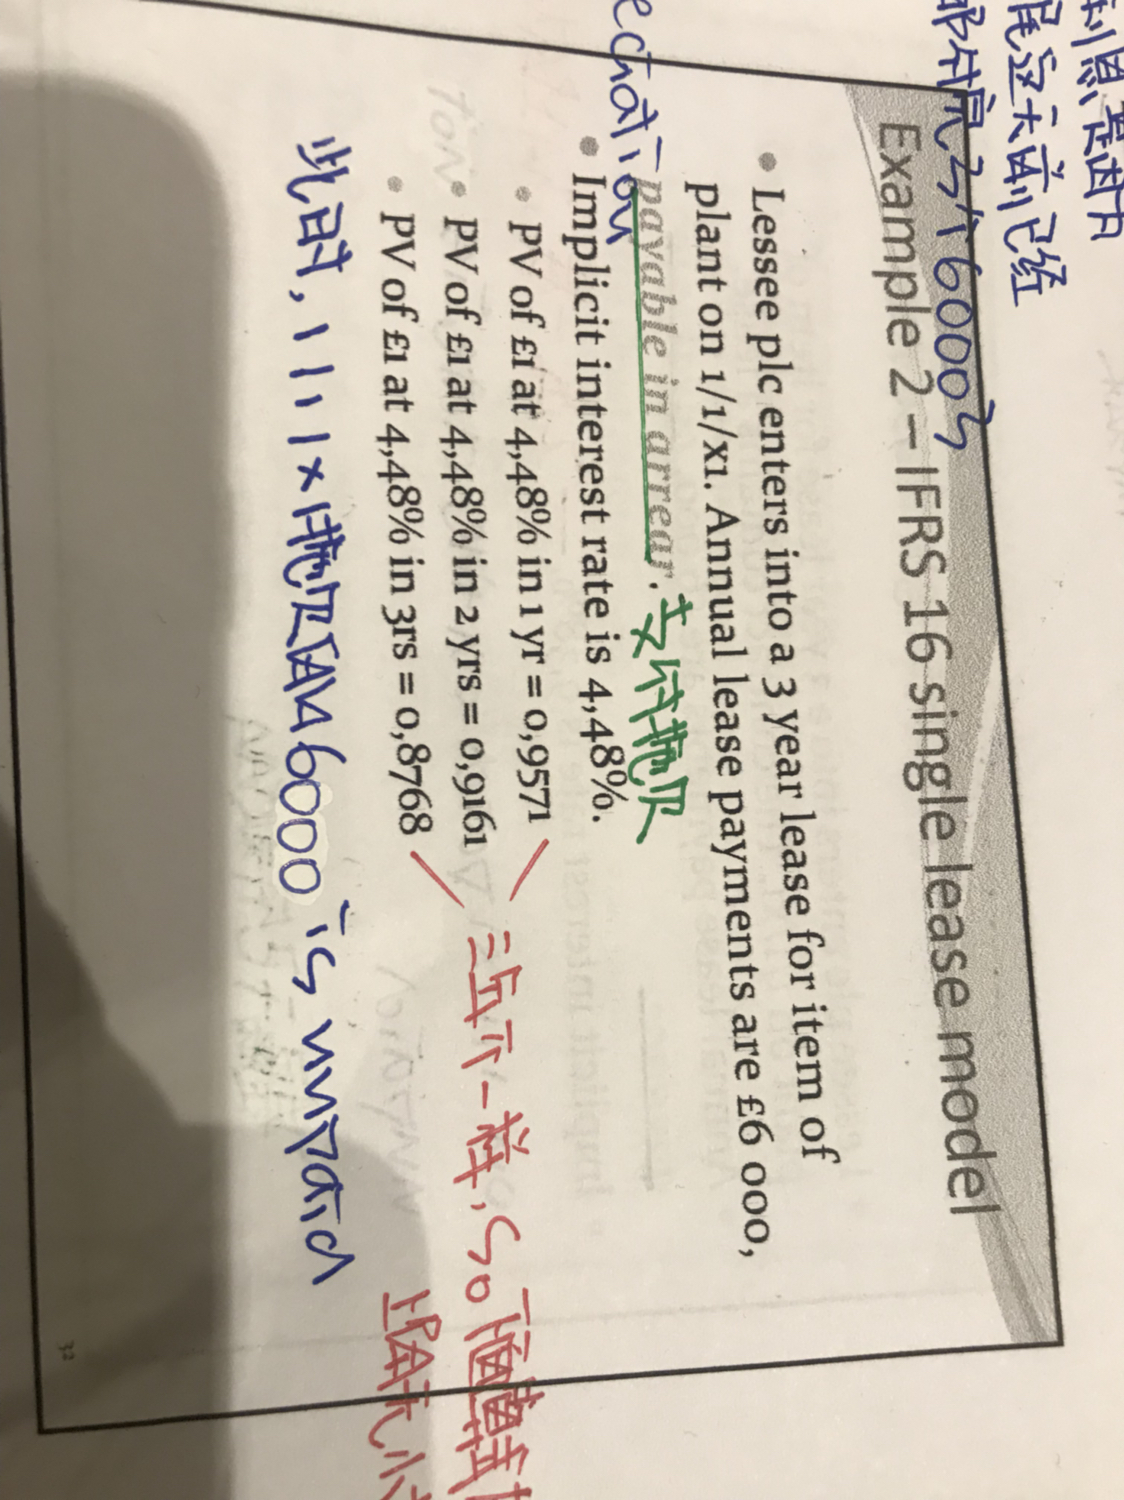 利息是因为
尾这六前已经
都付完了个6000了
Example 2 – IFRS 16 single lease model
• Lessee plc enters into a 3 year lease for item of
plant on 1/1/x1. Annual lease payments are £6 000,
payable in arrear. 支付拖欠
eciation
• Implicit interest rate is 4,48%.
• PV of £1 at 4,48% in 1 yr = 0,9571
• PV of £1 at 4,48% in 2 yrs = 0,9161
• PV of £1 at 4,48% in 3rs = 0,8768
三年不一样, so
此时, 1 1 1 1 × 拖欠 6000 is unpaid
32